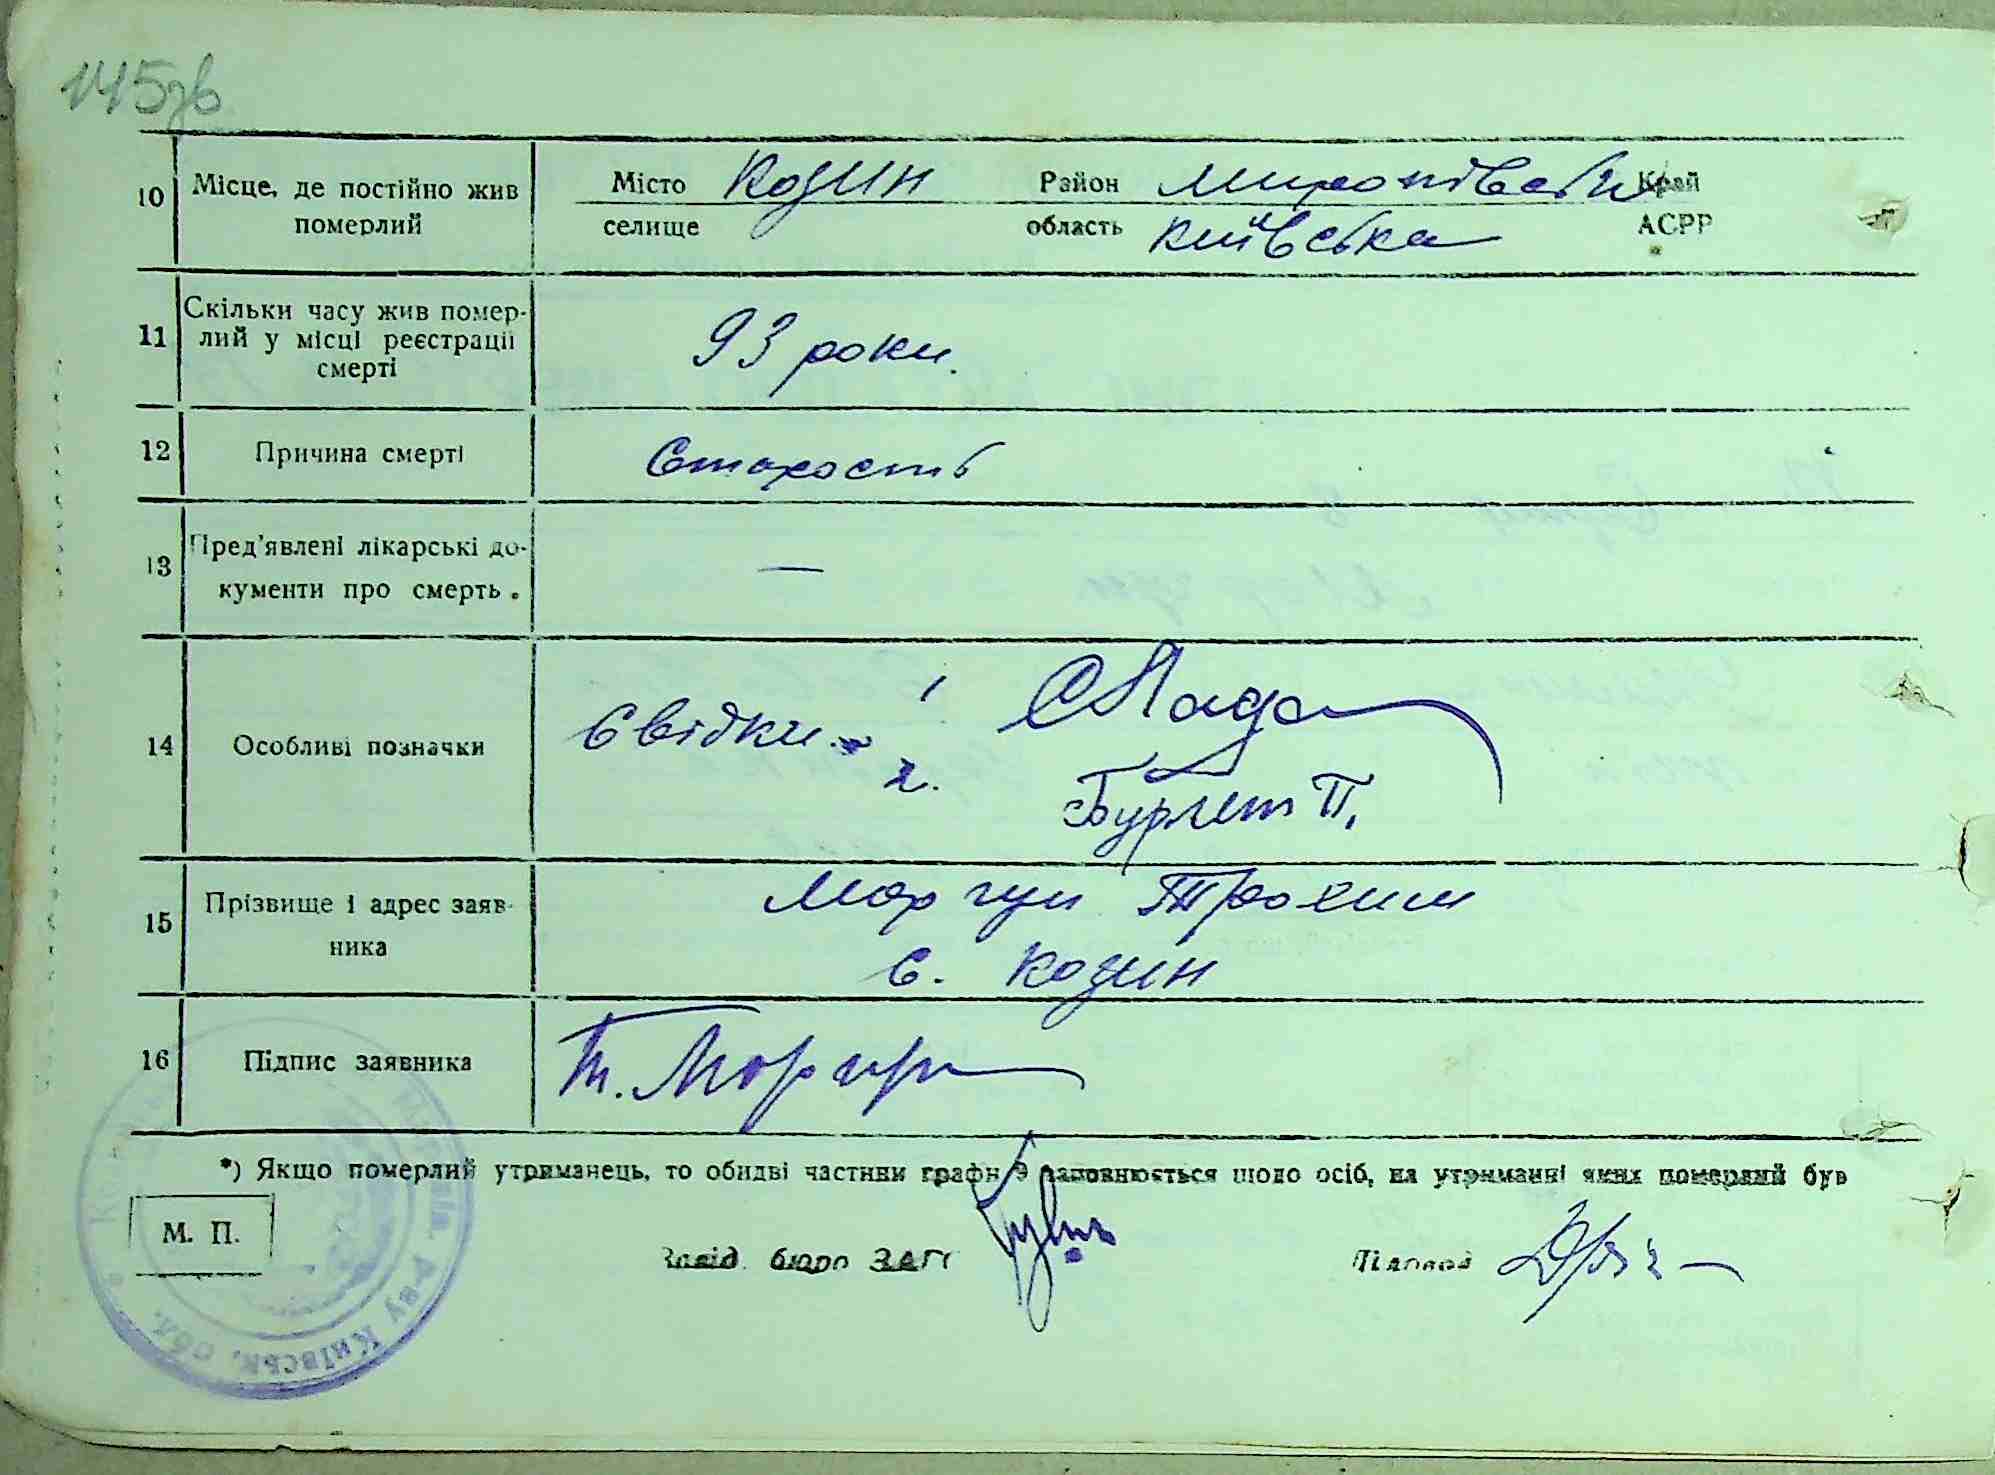 145зв
10 Місце, де постійно жив померлий Місто Козин Район Миронівський Край
селище область Київська АСРР
11 Скільки часу жив помер-
лий у місці реєстрації
смерті 93 роки.
12 Причина смерті Старость
13 Пред'явлені лікарські до-
кументи про смерть. —
14 Особливі позначки Свідки. 1
2. П.
15 Прізвище і адрес заяв-
ника Моргун Трохим
с. Козин
16 Підпис заявника Т. Моргун
*) Якщо померлий утриманець, то обидві частини графи 9 заповнюється щодо осіб, на утриманні яких померлий був
М. П.
Завід. бюро ЗАГС Діловод
Миронів. р-ну Київськ. обл.